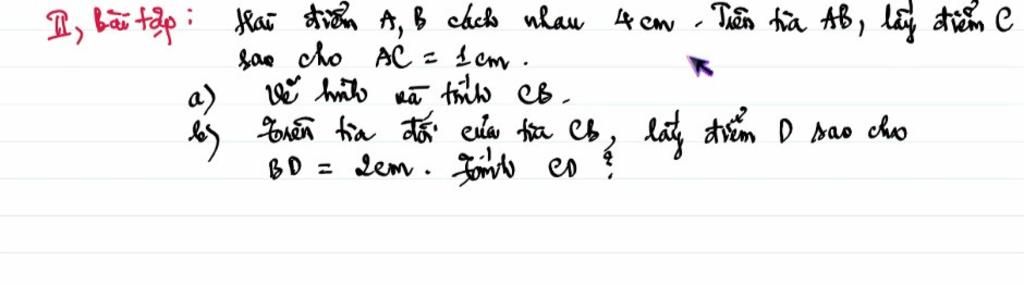 II, Bài tập: Hai điểm A, B cách nhau 4 cm. Trên tia AB, lấy điểm C
sao cho AC = 1cm.
a) Vẽ hình và tính CB.
b) Trên tia đối của tia CB, lấy điểm D sao cho
BD = 2cm. Tính CD ?